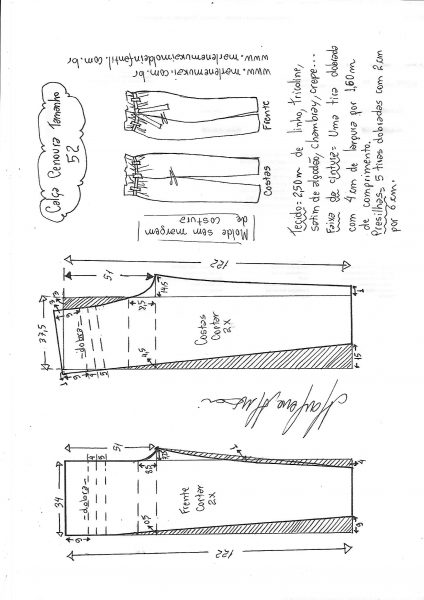 Calça Cenoura Tamanho
52
www.marlenemukai.com.br
www.marlenemukaimoldeinfantil.com.br
Frente
Costas
Molde sem margem
de costura
Tecido: 2,50 m de linho, tricoline,
satim de algodão, chambray, crepe...
Faixa de cintura: Uma tira dobrada
com 4 cm de largura por 1,60 m
de comprimento.
Presilhas: 5 tiras dobradas com 2 cm
por 6 cm.
122
51
37,5
14,5
8,5
dobra
Costas
Cortar
2x
15
122
51
34
8,5
dobra
Frente
Cortar
2x
0,5
4
9